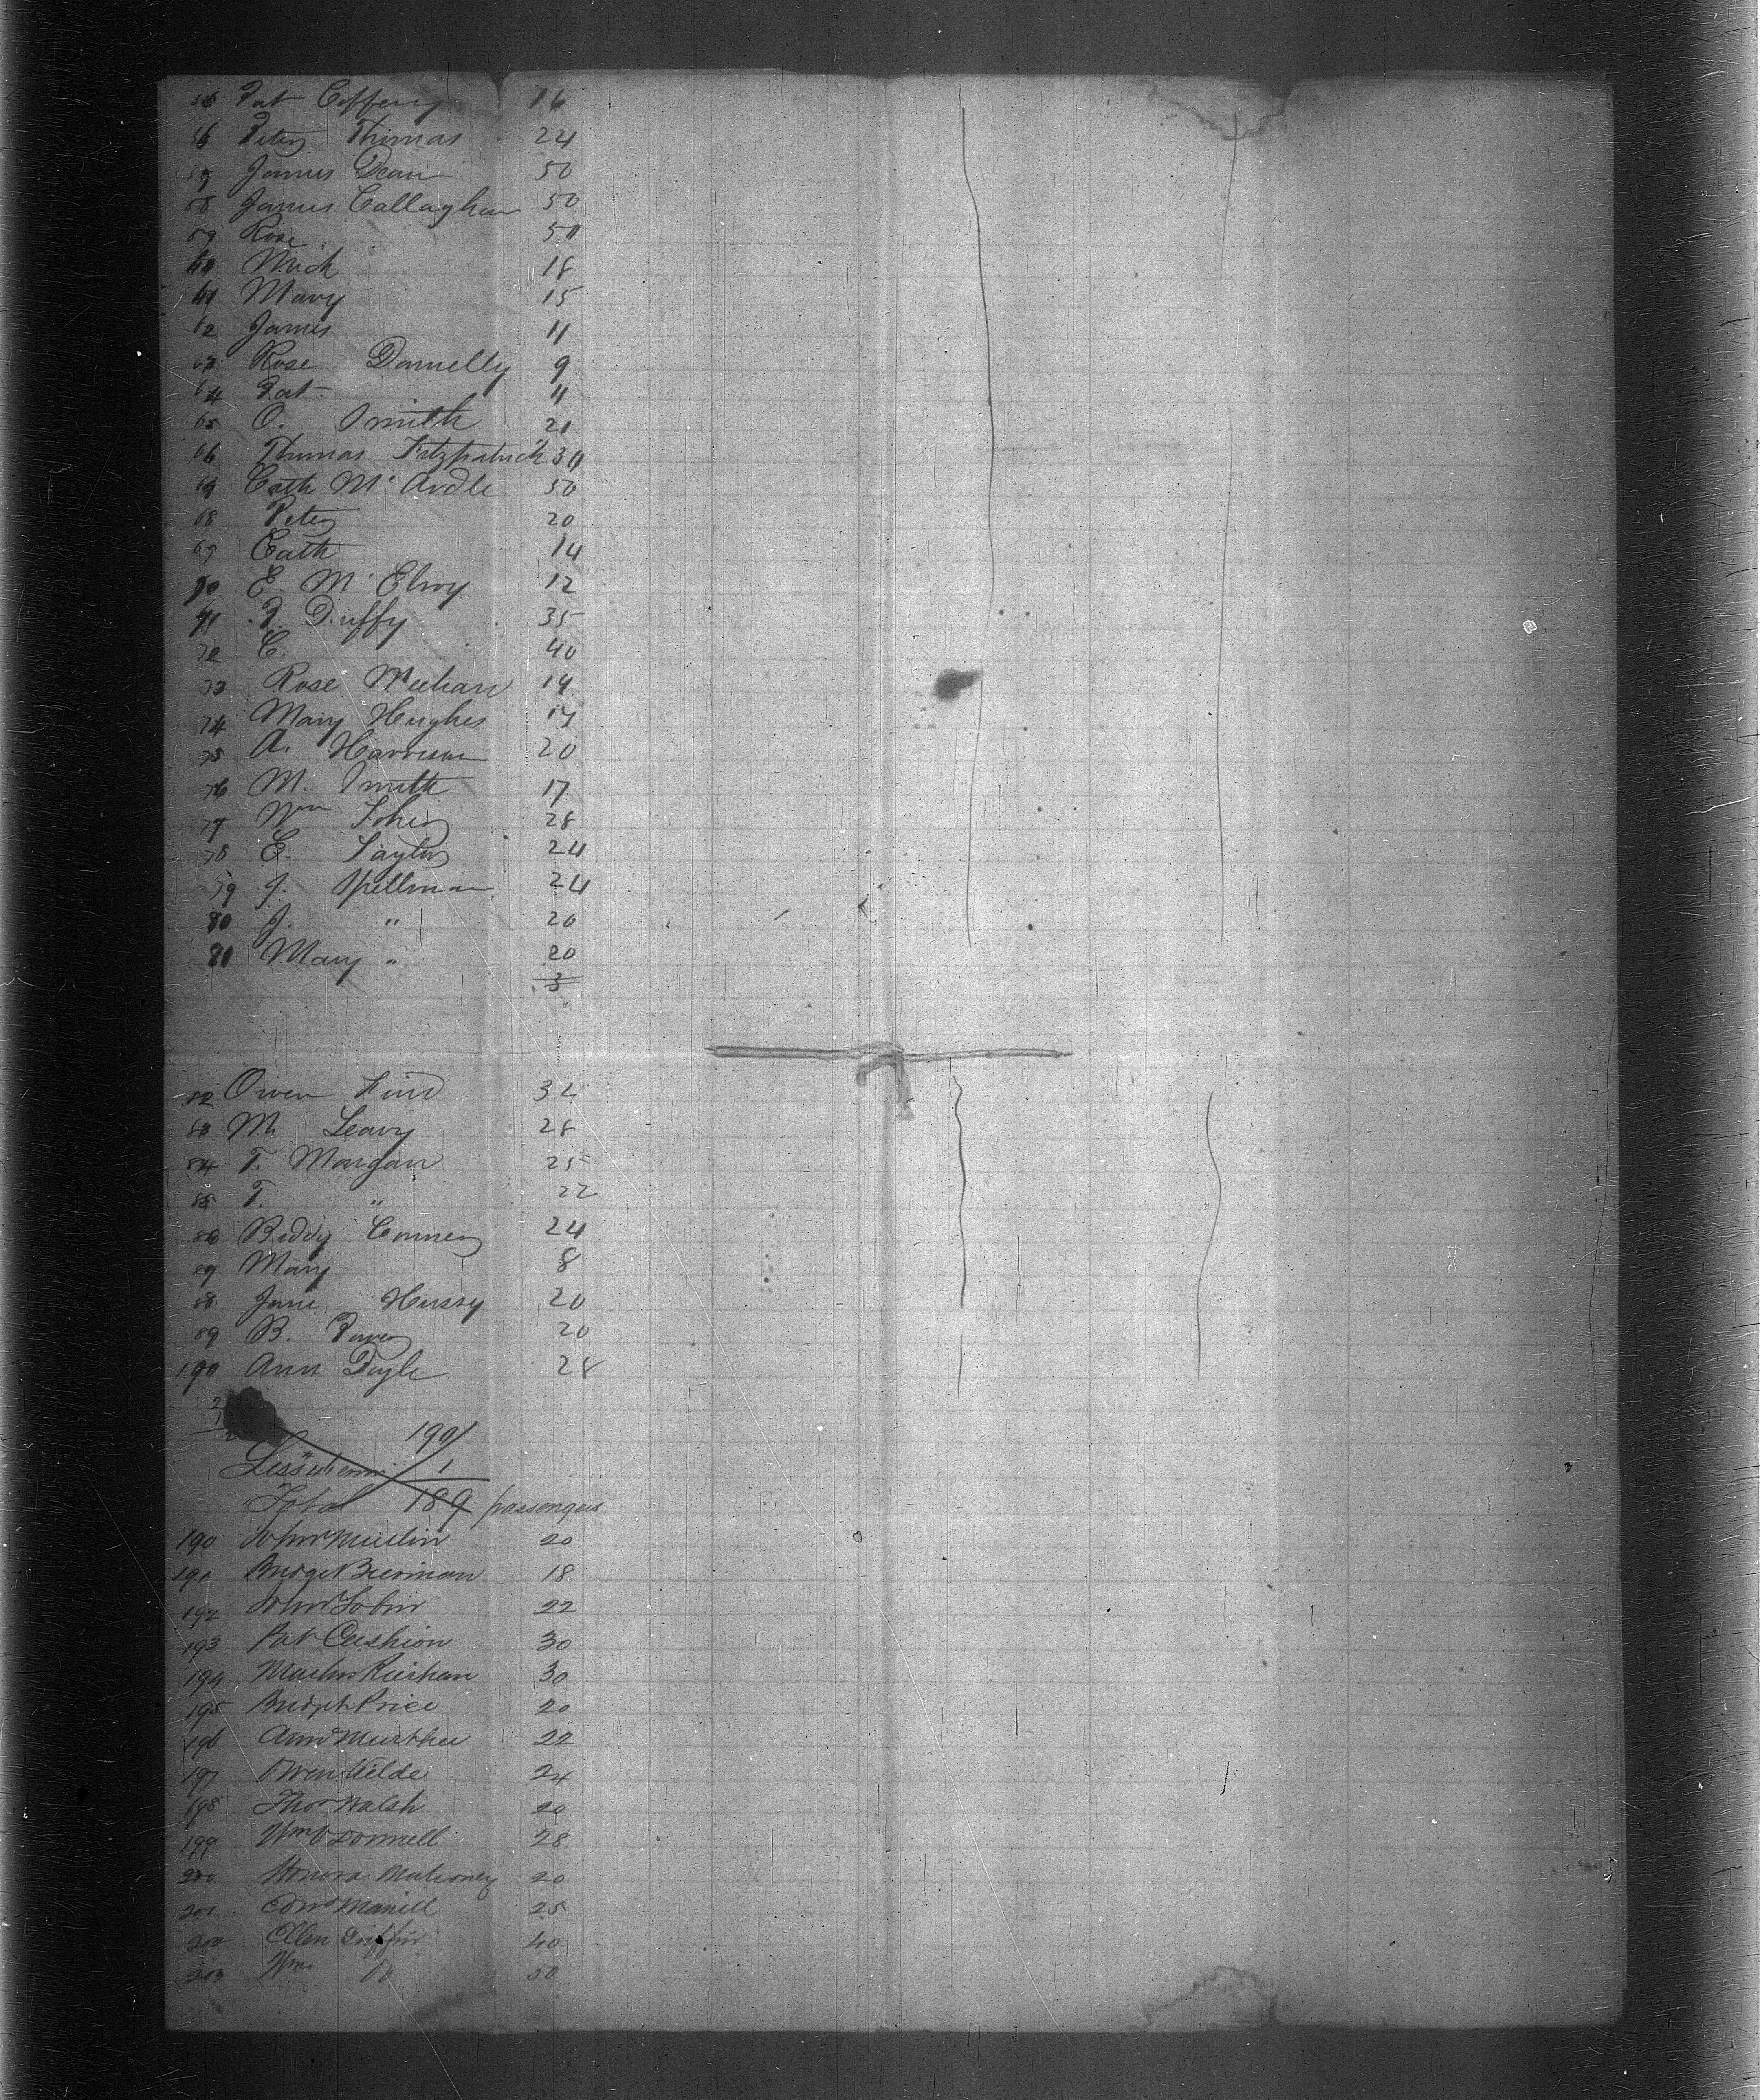 55 Pat Coffery 16
56 Peter Thomas 24
57 James Dean 50
58 James Callaghan 50
59 Rose 50
60 Mick 18
61 Mary 15
62 James 11
63 Rose Donnelly 9
64 Pat 11
65 O. Smith 21
66 Thomas Fitzpatrick 30
67 Cath McArdle 50
68 Peter 20
69 Cath 14
70 E. McElroy 12
71 P. Duffy 35
72 C. 40
73 Rose Meehan 19
74 Mary Hughes 17
75 A. Harrison 20
76 M. Smith 17
77 Wm 28
78 E. Taylor 24
79 J. Spellman 24
80 J. " 20
81 Mary " 20
3
82 Owen 32
83 M. Leavy 28
84 T. Morgan 25
85 T. " 22
86 Biddy Conner 24
87 Mary 8
88 Jane Hussy 20
89 B. Power 20
190 Ann Doyle 28
190
Less 1
Total 189 passengers
190 John 20
191 Bridget 18
192 John Tobin 22
193 Pat Cushion 30
194 Martin 30
195 Bridget Price 20
196 Ann 22
197 Owen Kilde 24
198 Thos Walsh 20
199 Wm O Donnell 28
200 Honora Mahoney 20
201 25
202 Ellen Griffin 40
203 Wm Do 50